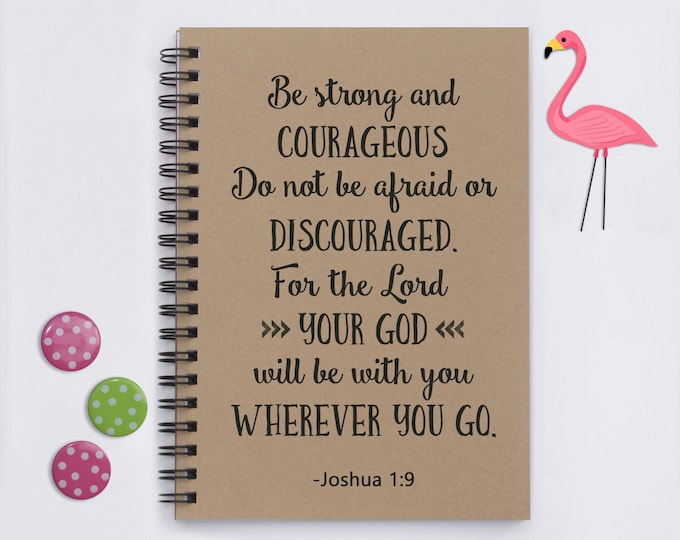 Be strong and
COURAGEOUS
Do not be afraid or
DISCOURAGED.
For the Lord
»» YOUR GOD ««
will be with you
WHEREVER YOU GO.
-Joshua 1:9